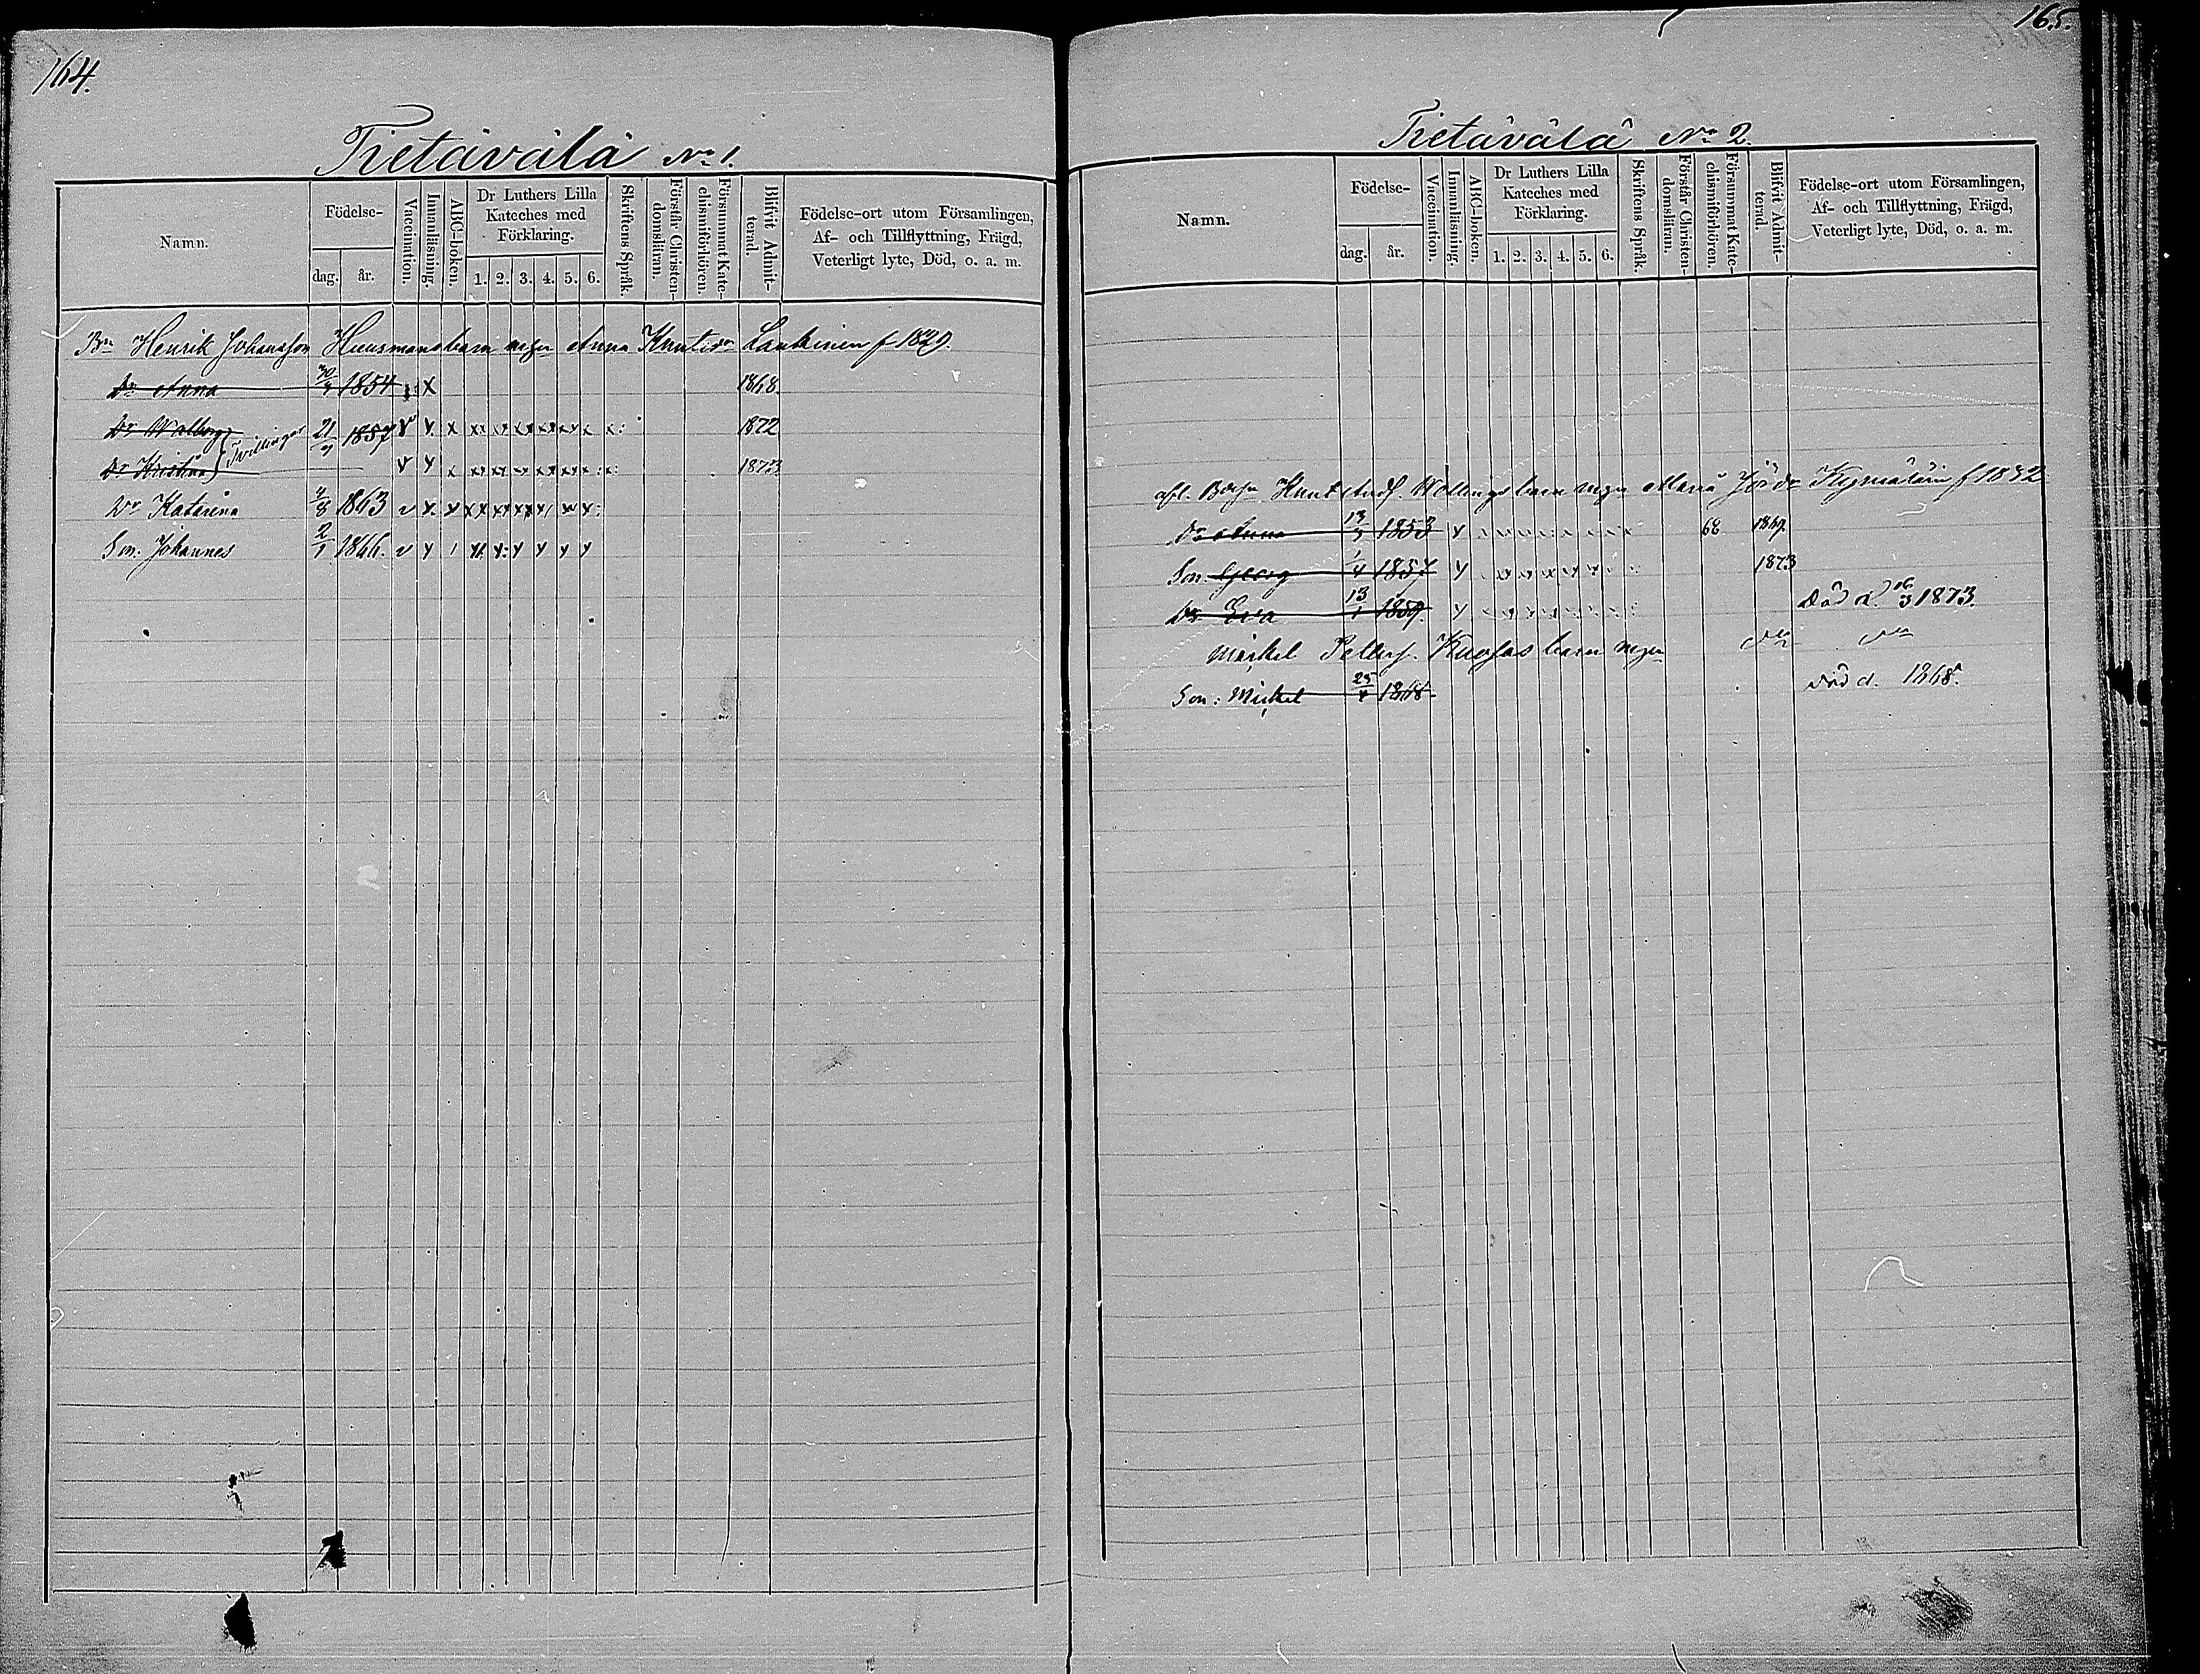 164.
Tietäwälä No 1.
Namn.
Födelse-
dag.
år.
Vaccination.
Innanläsning.
ABC-boken.
Dr Luthers Lilla Kateches med Förklaring.
1. 2. 3. 4. 5. 6.
Skriftens Språk.
Förstår Christendomsläran.
Försummat Katechismiförhören.
Blifvit Admitterad.
Födelse-ort utom Församlingen,
Af- och Tillflyttning, Frägd,
Veterligt lyte, Död, o. a. m.
Bn Henrik Johansson Huusmans barn m hu Anna Knutsdr Laukinen f 1829.
Dr Anna 1854 x 1868.
Dr Walborg Tvillingar 21/9 1857 1872
Dr Kristina 1873
Dr Katarina 1863
Son: Johannes 2/1 1866.
165.
Tietäwälä No 2.
Namn.
Födelse-
dag.
år.
Vaccination.
Innanläsning.
ABC-boken.
Dr Luthers Lilla
Kateches med
Förklaring.
1. 2. 3. 4. 5. 6.
Skriftens Språk.
Förstår Christendomsläran.
Försummat Katechismiförhören.
Blifvit Admitterad.
Födelse-ort utom Församlingen,
Af- och Tillflyttning, Frägd,
Veterligt lyte, Död, o. a. m.
Knut barn Maria f 1832
Dr Anna 13/3 1853 68 1869
Son Georg 1/4 1857 1873
Dr Eva 13/1 1859. Död d. 16/3 1873.
Michel barn
Son: Michel 25/4 1868 död d. 1868.